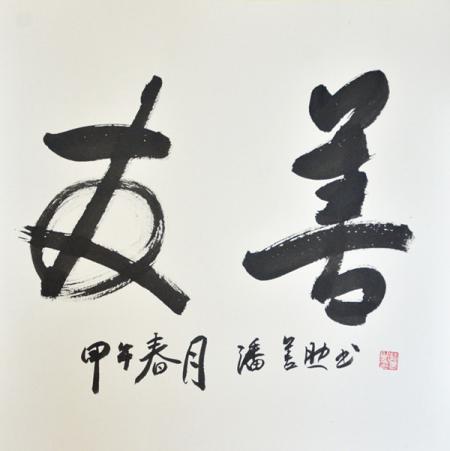 友善
甲午春月 潘善助书